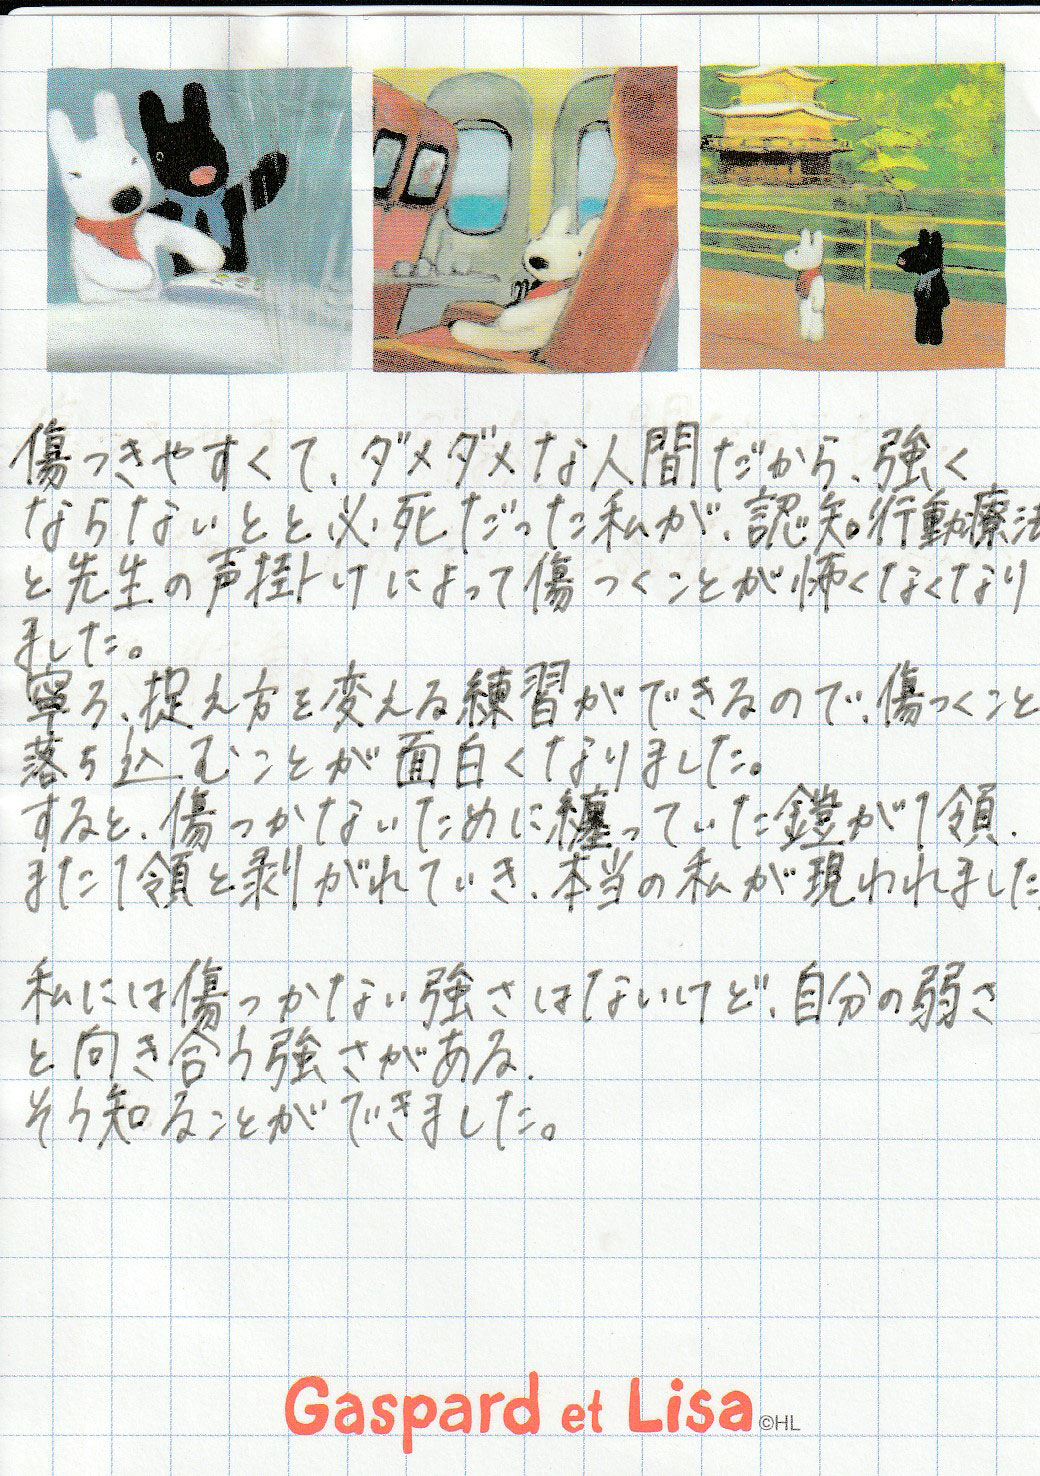 傷つきやすくて、ダメダメな人間だから、強く
ならないとと必死だった私が、認知行動療法
と先生の声掛けによって傷つくことが怖くなくなり
ました。
寧ろ、捉え方を変える練習ができるので、傷つくこと
落ち込むことが面白くなりました。
すると、傷つかないために纏っていた鎧が1領、
また1領と剥がれていき、本当の私が現われました。
私には傷つかない強さはないけど、自分の弱さ
と向き合う強さがある、
そう知ることができました。
Gaspard et Lisa ©HL